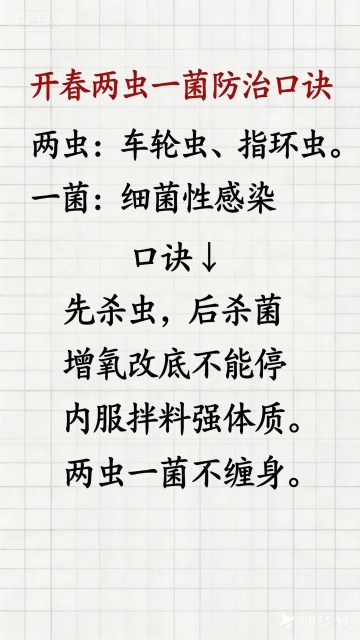 开春两虫一菌防治口诀
两虫：车轮虫、指环虫。
一菌：细菌性感染
口诀↓
先杀虫，后杀菌
增氧改底不能停
内服拌料强体质。
两虫一菌不缠身。